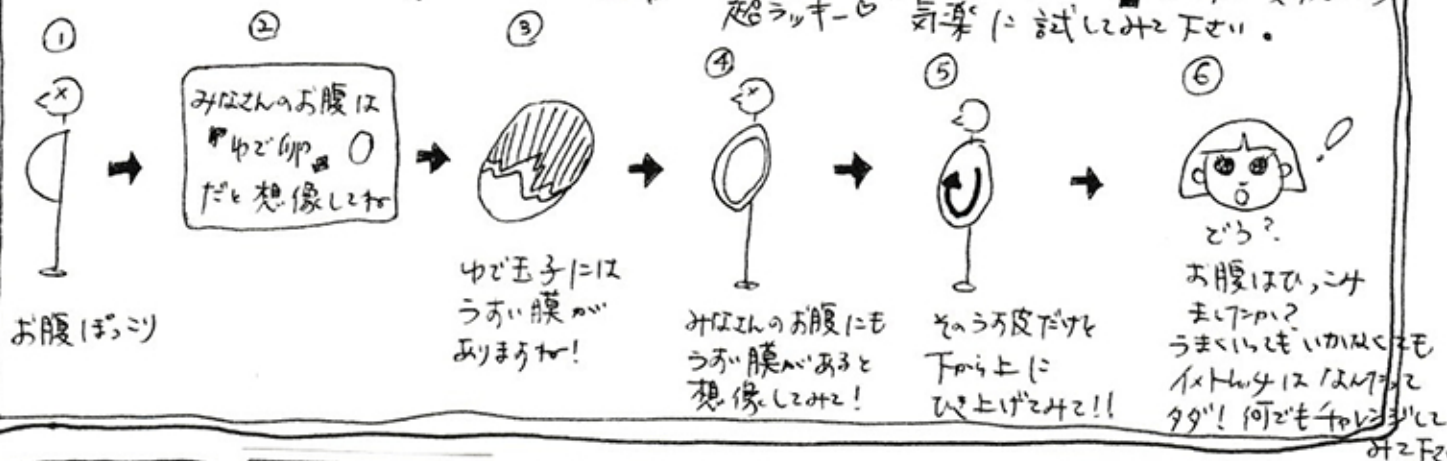 超ラッキー♡ 気楽に試してみて下さい。
①
②
③
④
⑤
⑥
お腹ぽっこり
みなさんのお腹は
『ゆで卵』
だと想像してね
ゆで玉子には
うすい膜が
ありますね!
みなさんのお腹にも
うすい膜があると
想像してみて!
そのうす皮だけを
下から上に
ひき上げてみて!!
どう?
お腹はひっこみ
ましたか?
うまくいってもいかなくても
イメトレは なんたって
タダ! 何でもチャレンジして
みて下